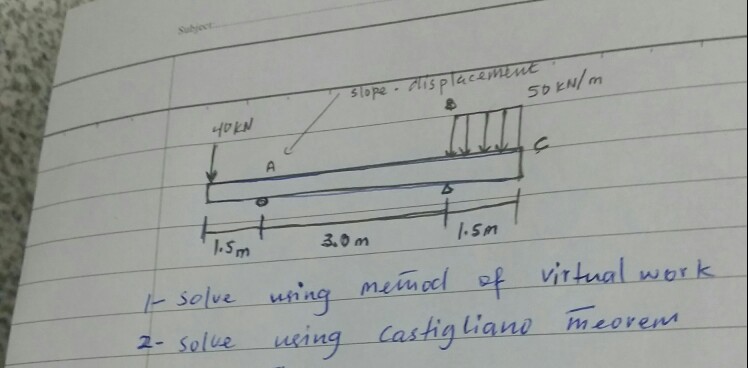 Subject
slope - displacement
B
50 kN/m
40 kN
A
C
1.5m
3.0m
1.5m
1- solve using method of virtual work
2- solve using Castigliano theorem